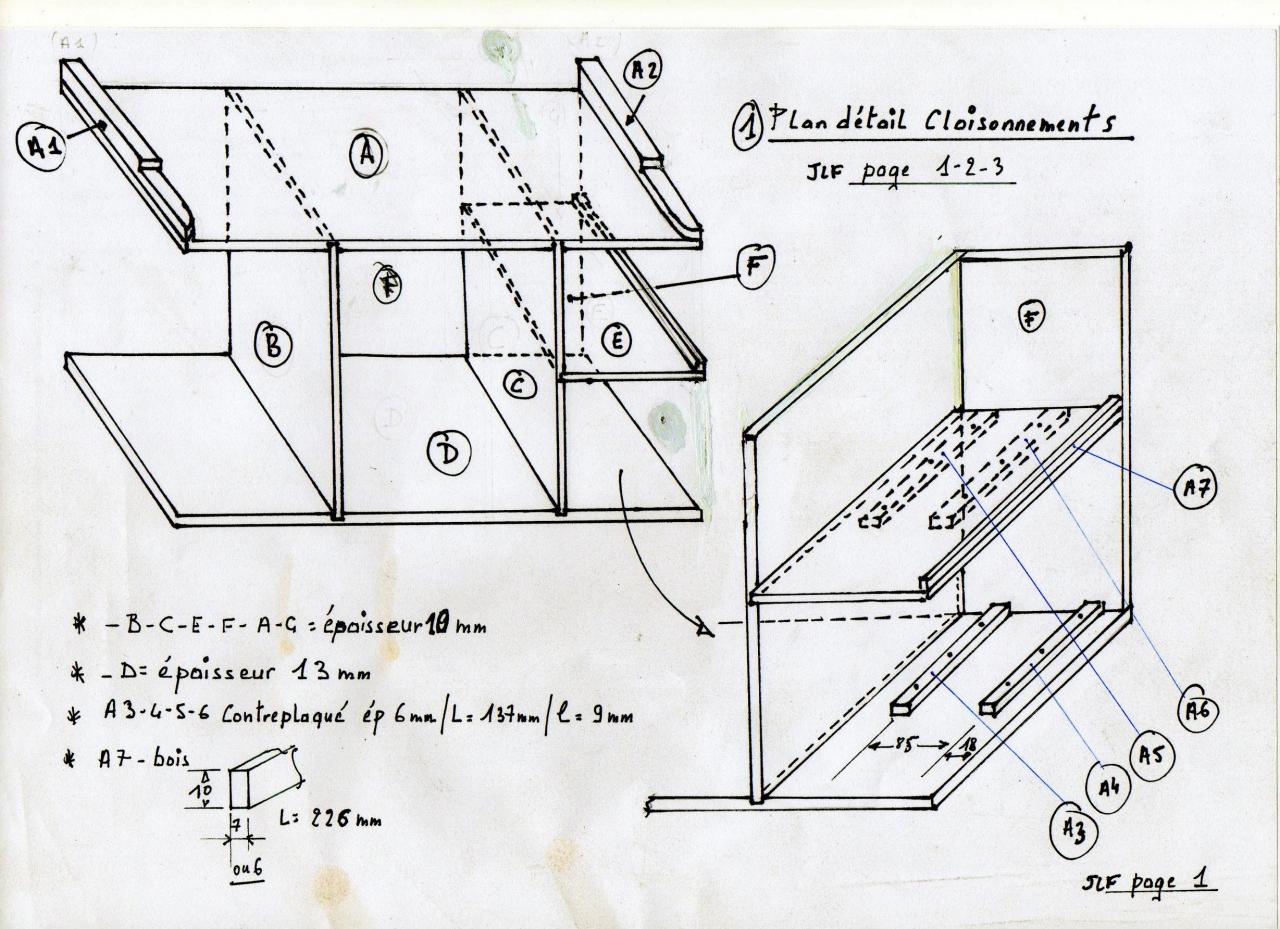 (A1)
(A2)
A1
A
A2
1 Plan détail Cloisonnements
JLF page 1-2-3
F
B
E
C
D
F
A7
* - B-C-E-F-A-G = épaisseur 10 mm
* - D= épaisseur 13 mm
* A3-4-5-6 Contreplaqué ép 6mm/L= 137mm/l= 9mm
* A7- bois
10
7
ou 6
L= 226 mm
85
18
A6
A5
A4
A3
JLF page 1